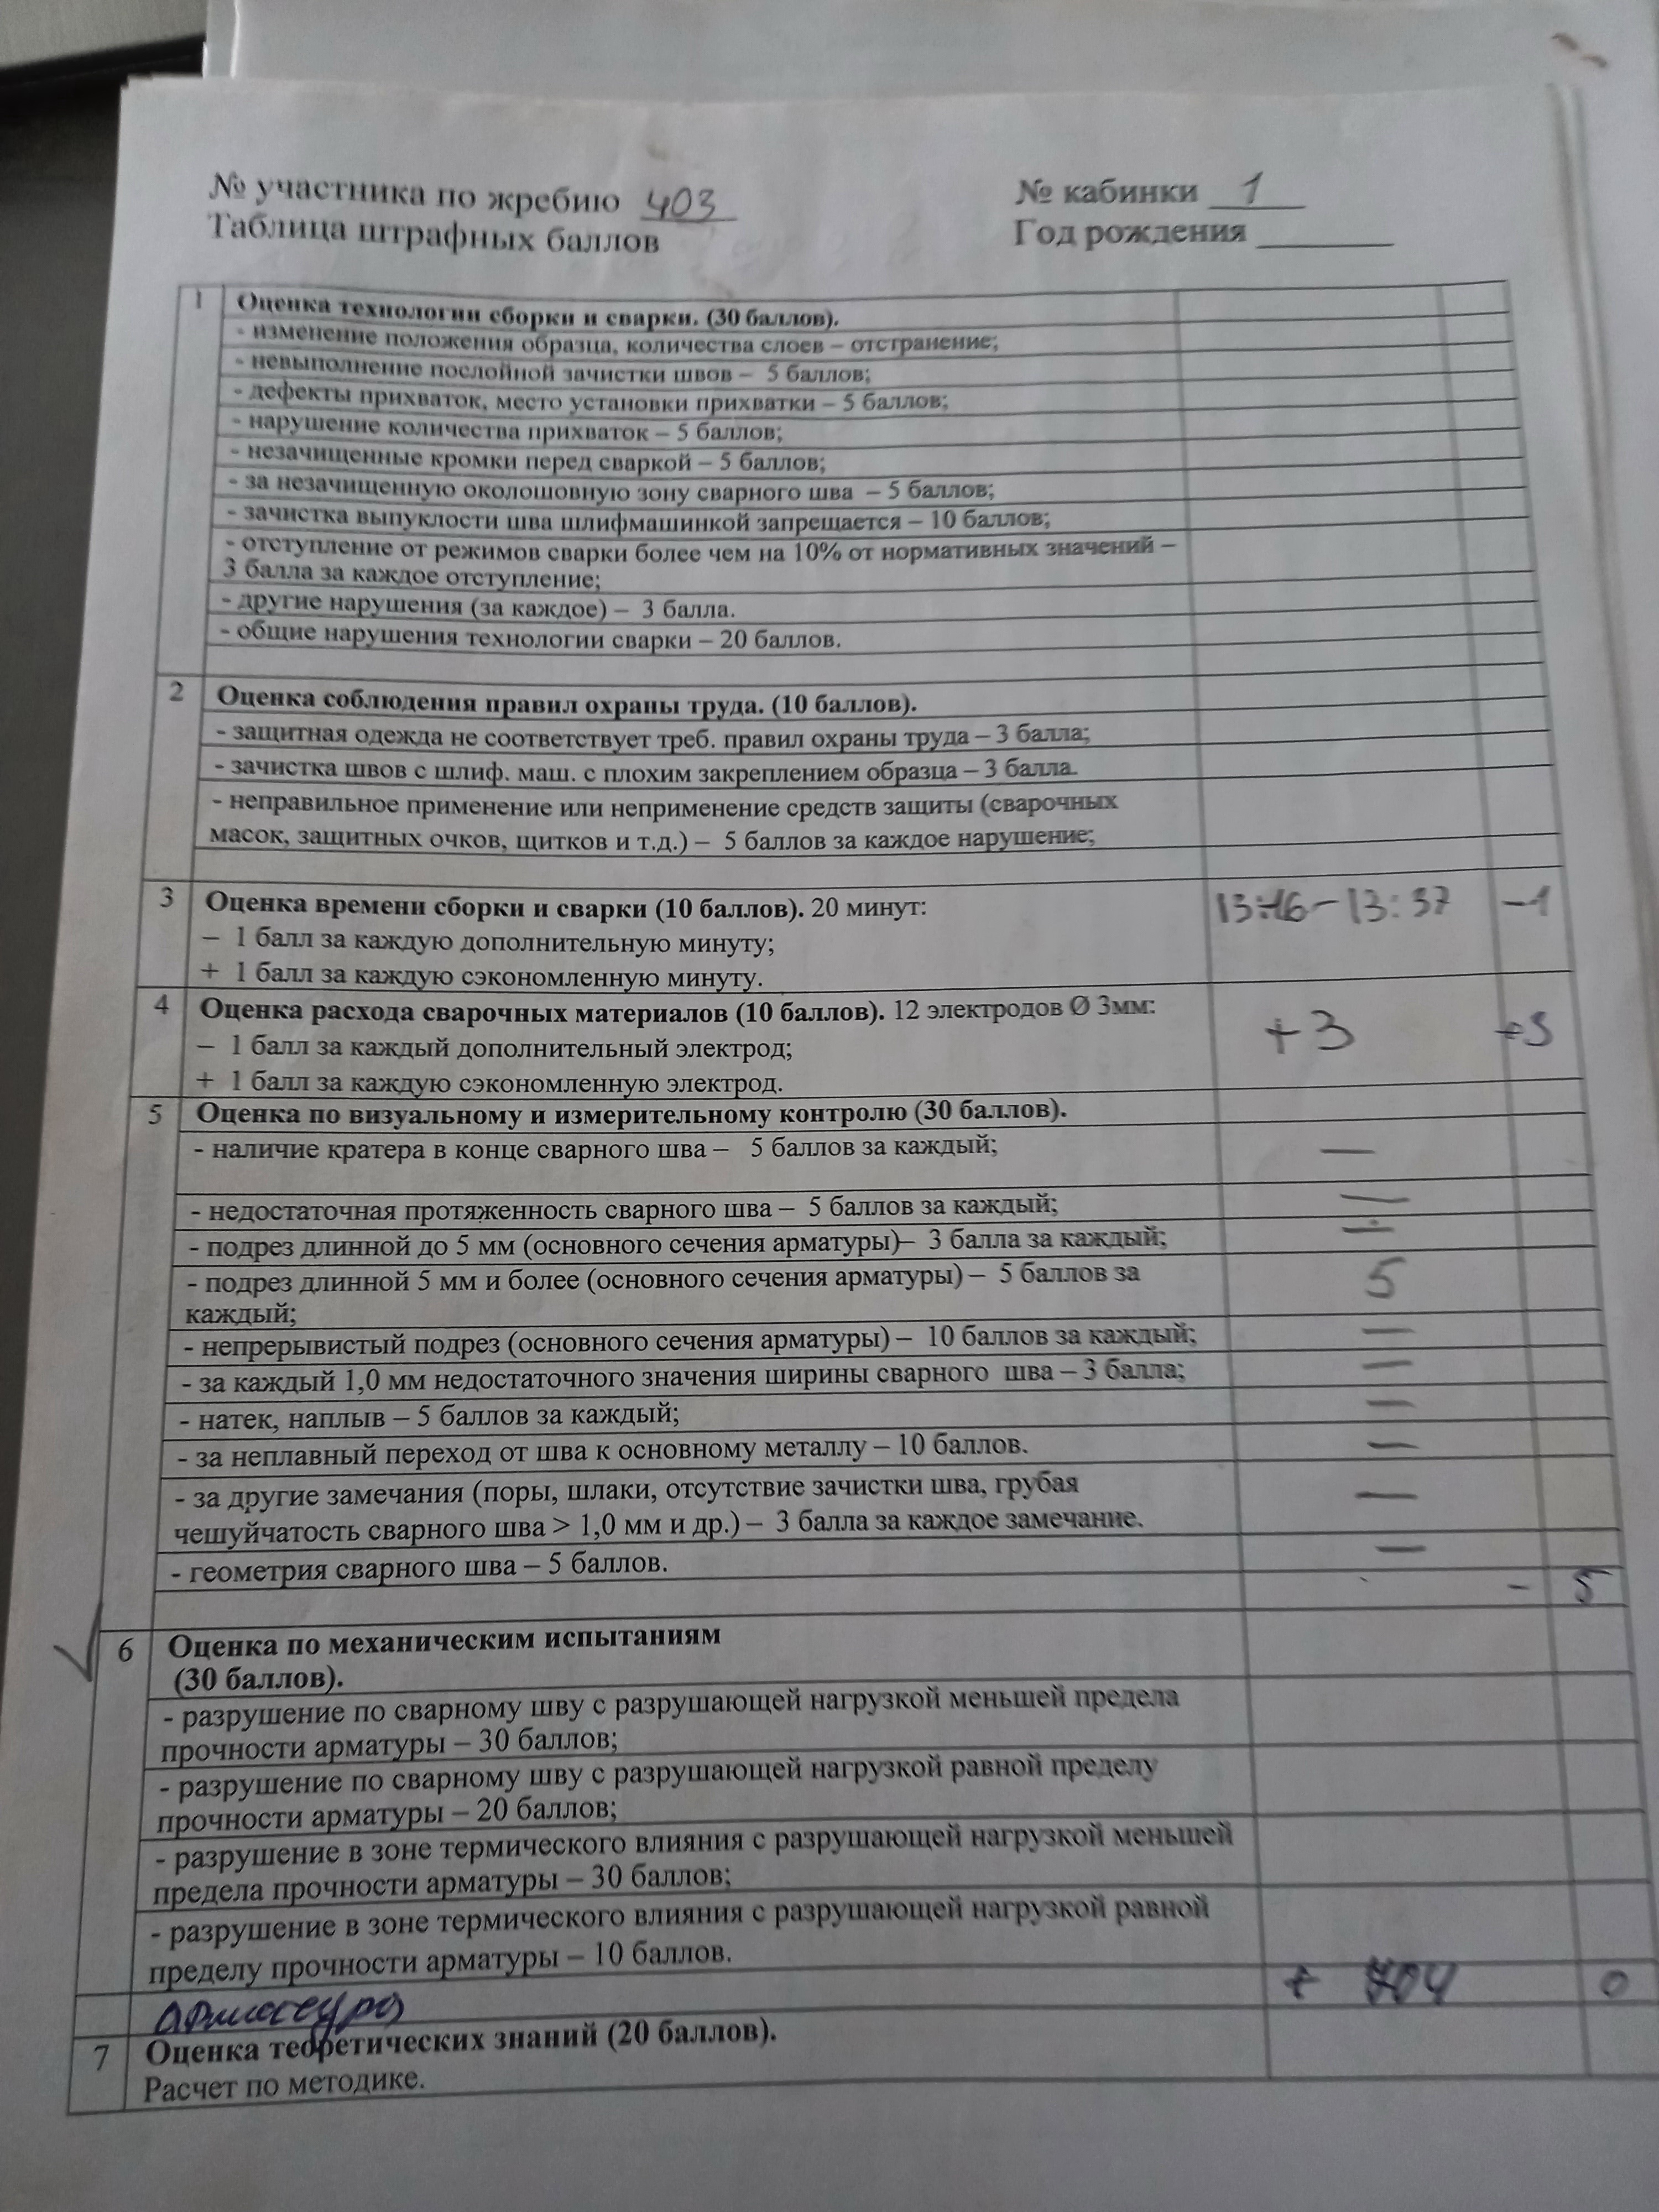 № участника по жребию 403 № кабинки 1
Таблица штрафных баллов Год рождения
1 Оценка технологии сборки и сварки. (30 баллов).
- изменение положения образца, количества слоев – отстранение;
- невыполнение послойной зачистки швов – 5 баллов;
- дефекты прихваток, место установки прихватки – 5 баллов;
- нарушение количества прихваток – 5 баллов;
- незачищенные кромки перед сваркой – 5 баллов;
- за незачищенную околошовную зону сварного шва – 5 баллов;
- зачистка выпуклости шва шлифмашинкой запрещается – 10 баллов;
- отступление от режимов сварки более чем на 10% от нормативных значений –
3 балла за каждое отступление;
- другие нарушения (за каждое) – 3 балла.
- общие нарушения технологии сварки – 20 баллов.
2 Оценка соблюдения правил охраны труда. (10 баллов).
- защитная одежда не соответствует треб. правил охраны труда – 3 балла;
- зачистка швов с шлиф. маш. с плохим закреплением образца – 3 балла.
- неправильное применение или неприменение средств защиты (сварочных
масок, защитных очков, щитков и т.д.) – 5 баллов за каждое нарушение;
3 Оценка времени сборки и сварки (10 баллов). 20 минут: 13:16 – 13:37 -1
– 1 балл за каждую дополнительную минуту;
+ 1 балл за каждую сэкономленную минуту.
4 Оценка расхода сварочных материалов (10 баллов). 12 электродов Ø 3мм: +3 +3
– 1 балл за каждый дополнительный электрод;
+ 1 балл за каждую сэкономленную электрод.
5 Оценка по визуальному и измерительному контролю (30 баллов).
- наличие кратера в конце сварного шва – 5 баллов за каждый; —
- недостаточная протяженность сварного шва – 5 баллов за каждый; —
- подрез длинной до 5 мм (основного сечения арматуры)– 3 балла за каждый; —
- подрез длинной 5 мм и более (основного сечения арматуры) – 5 баллов за 5
каждый;
- непрерывистый подрез (основного сечения арматуры) – 10 баллов за каждый; —
- за каждый 1,0 мм недостаточного значения ширины сварного шва – 3 балла; —
- натек, наплыв – 5 баллов за каждый; —
- за неплавный переход от шва к основному металлу – 10 баллов. —
- за другие замечания (поры, шлаки, отсутствие зачистки шва, грубая —
чешуйчатость сварного шва > 1,0 мм и др.) – 3 балла за каждое замечание.
- геометрия сварного шва – 5 баллов. —
- 5
6 Оценка по механическим испытаниям
(30 баллов).
- разрушение по сварному шву с разрушающей нагрузкой меньшей предела
прочности арматуры – 30 баллов;
- разрушение по сварному шву с разрушающей нагрузкой равной пределу
прочности арматуры – 20 баллов;
- разрушение в зоне термического влияния с разрушающей нагрузкой меньшей
предела прочности арматуры – 30 баллов;
- разрушение в зоне термического влияния с разрушающей нагрузкой равной
пределу прочности арматуры – 10 баллов.
арматура + 704 0
7 Оценка теоретических знаний (20 баллов).
Расчет по методике.